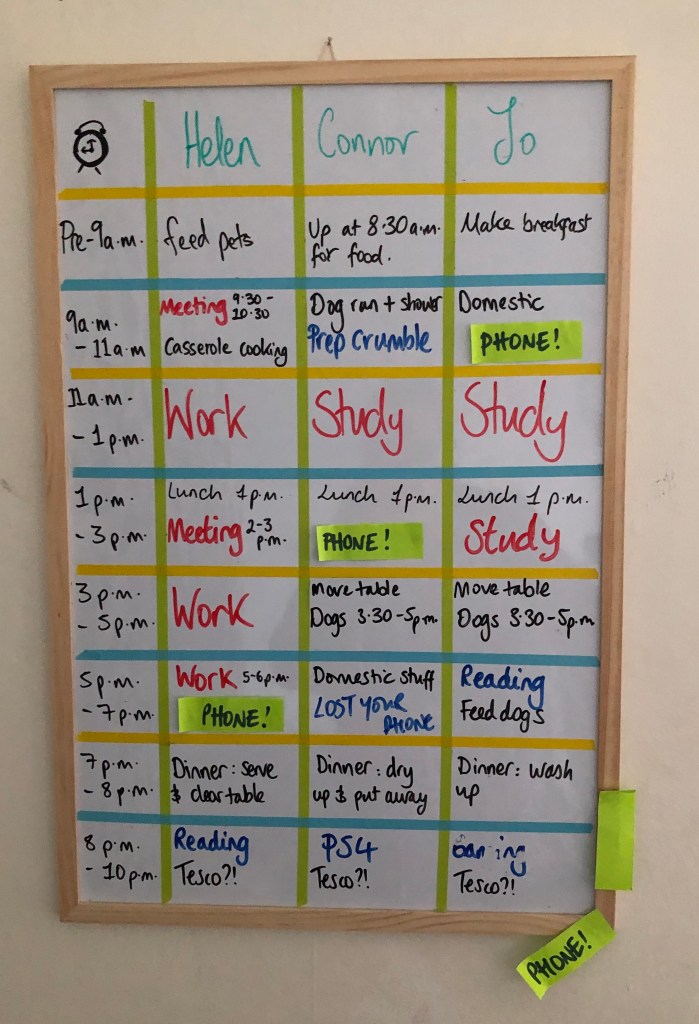 Helen Connor Jo
Pre-9a.m. feed pets Up at 8.30a.m. Make breakfast
for food.
9a.m. Meeting 9.30- Dog run + shower Domestic
10.30
- 11a.m Casserole cooking Prep Crumble PHONE!
11a.m. Work Study Study
- 1p.m.
1p.m. Lunch 1p.m. Lunch 1p.m. Lunch 1 p.m.
- 3p.m. Meeting 2-3 PHONE! Study
p.m.
3p.m. Work Move table Move table
- 5p.m. Dogs 3.30-5p.m. Dogs 3.30-5p.m.
5p.m. Work 5-6p.m. Domestic stuff Reading
- 7p.m. PHONE! LOST YOUR Feed dogs
PHONE
7p.m. Dinner: serve Dinner: dry Dinner: wash
- 8p.m. & clear table up & put away up
8p.m. Reading PS4
- 10p.m. Tesco?! Tesco?! Tesco?!
PHONE!